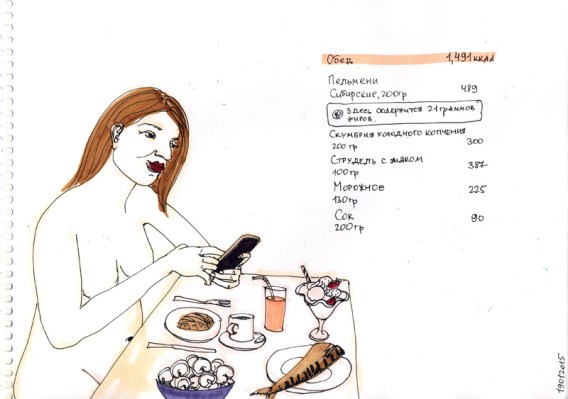 Обед 1,491 ккал
Пельмени
Сибирские, 200гр 489
Здесь содержится 21 граммов
жиров.
Скумбрия холодного копчения
200 гр 300
Струдель с маком
100гр 387
Морожное 225
130гр
Сок 90
200гр
19012015